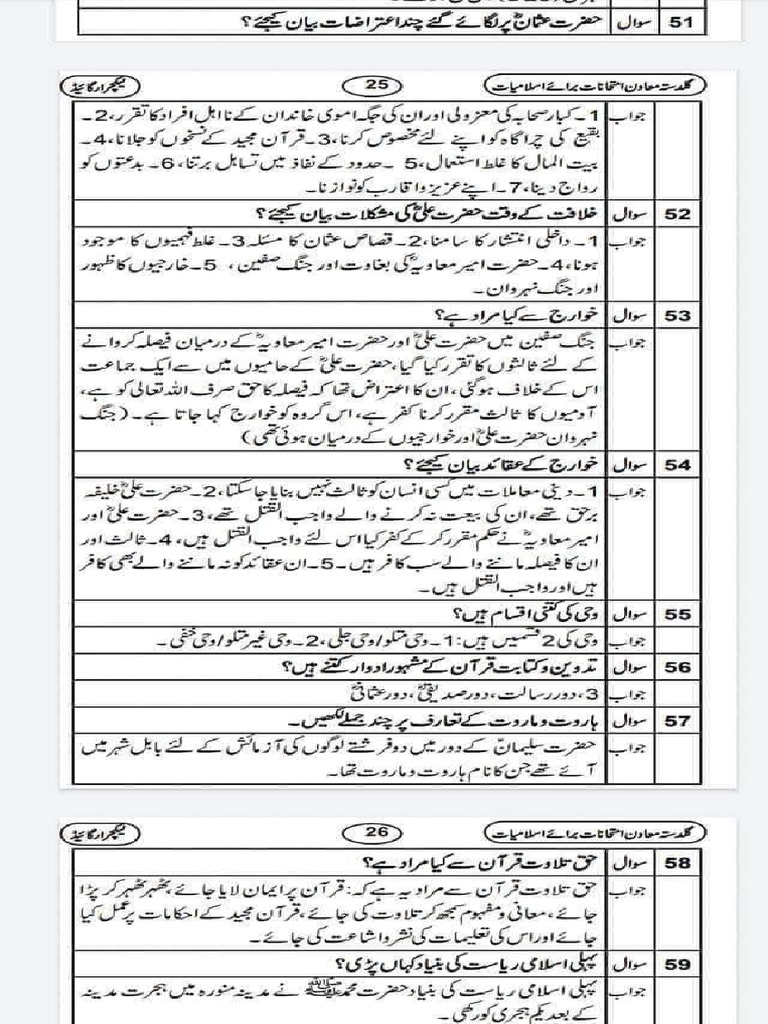 51 سوال حضرت عثمانؓ پر لگائے گئے چند اعتراضات بیان کیجئے؟
گلدستہ معاون امتحانات برائے اسلامیات 25 لیکچرار گائیڈ
جواب 1۔ کبار صحابہ کی معزولی اور ان کی جگہ اموی خاندان کے نااہل افراد کا تقرر، 2۔
بقیع کی چراگاہ کو اپنے لئے مخصوص کرنا، 3۔ قرآن مجید کے نسخوں کو جلانا، 4۔
بیت المال کا غلط استعمال، 5 ۔ حدود کے نفاذ میں تساہل برتنا، 6۔ بدعتوں کو
رواج دینا، 7۔ اپنے عزیز و اقارب کو نوازنا۔
52 سوال خلافت کے وقت حضرت علیؓ کی مشکلات بیان کیجئے؟
جواب 1۔ داخلی انتشار کا سامنا، 2۔ قصاص عثمان کا مسئلہ 3۔ غلط فہمیوں کا موجود
ہونا، 4۔ حضرت امیر معاویہؓ کی بغاوت اور جنگ صفین، 5۔ خارجیوں کا ظہور
اور جنگ نہروان۔
53 سوال خوارج سے کیا مراد ہے؟
جواب جنگ صفین میں حضرت علیؓ اور حضرت امیر معاویہؓ کے درمیان فیصلہ کروانے
کے لئے ثالثوں کا تقرر کیا گیا، حضرت علیؓ کے حامیوں میں سے ایک جماعت
اس کے خلاف ہو گئی، ان کا اعتراض تھا کہ فیصلہ کا حق صرف اللہ تعالی کو ہے،
آدمیوں کا ثالث مقرر کرنا کفر ہے، اس گروہ کو خوارج کہا جاتا ہے۔ (جنگ
نہروان حضرت علیؓ اور خوارجیوں کے درمیان ہوئی تھی)
54 سوال خوارج کے عقائد بیان کیجئے؟
جواب 1۔ دینی معاملات میں کسی انسان کو ثالث نہیں بنایا جا سکتا، 2۔ حضرت علیؓ خلیفہ
برحق تھے، ان کی بیعت نہ کرنے والے واجب القتل تھے، 3۔ حضرت علیؓ اور
امیر معاویہؓ نے حکم مقرر کر کے کفر کیا اس لئے واجب القتل ہیں، 4۔ ثالث اور
ان کا فیصلہ ماننے والے سب کافر ہیں۔ 5۔ ان عقائد کو نہ ماننے والے بھی کافر
ہیں اور واجب القتل ہیں۔
55 سوال وحی کی کتنی اقسام ہیں؟
جواب وحی کی 2 قسمیں ہیں: 1۔ وحی متلو/وحی جلی، 2۔ وحی غیر متلو/وحی خفی۔
56 سوال تدوین و کتابت قرآن کے مشہور ادوار کتنے ہیں؟
جواب 3، دور رسالت، دور صدیقیؓ، دور عثمانیؓ
57 سوال ہاروت و ماروت کے تعارف پر چند جملے لکھیں۔
جواب حضرت سلیمانؑ کے دور میں دو فرشتے لوگوں کی آزمائش کے لئے بابل شہر میں
آئے تھے جن کا نام ہاروت و ماروت تھا۔
گلدستہ معاون امتحانات برائے اسلامیات 26 لیکچرار گائیڈ
58 سوال حق تلاوت قرآن سے کیا مراد ہے؟
جواب حق تلاوت قرآن سے مراد یہ ہے کہ: قرآن پر ایمان لایا جائے، ٹھہر ٹھہر کر پڑا
جائے، معانی و مفہوم سمجھ کر تلاوت کی جائے، قرآن مجید کے احکامات پر عمل کیا
جائے اور اس کی تعلیمات کی نشر و اشاعت کی جائے۔
59 سوال پہلی اسلامی ریاست کی بنیاد کہاں پڑی؟
جواب پہلی اسلامی ریاست کی بنیاد حضرت محمد ﷺ نے مدینہ منورہ میں ہجرت مدینہ
کے بعد یکم ہجری کو رکھی۔